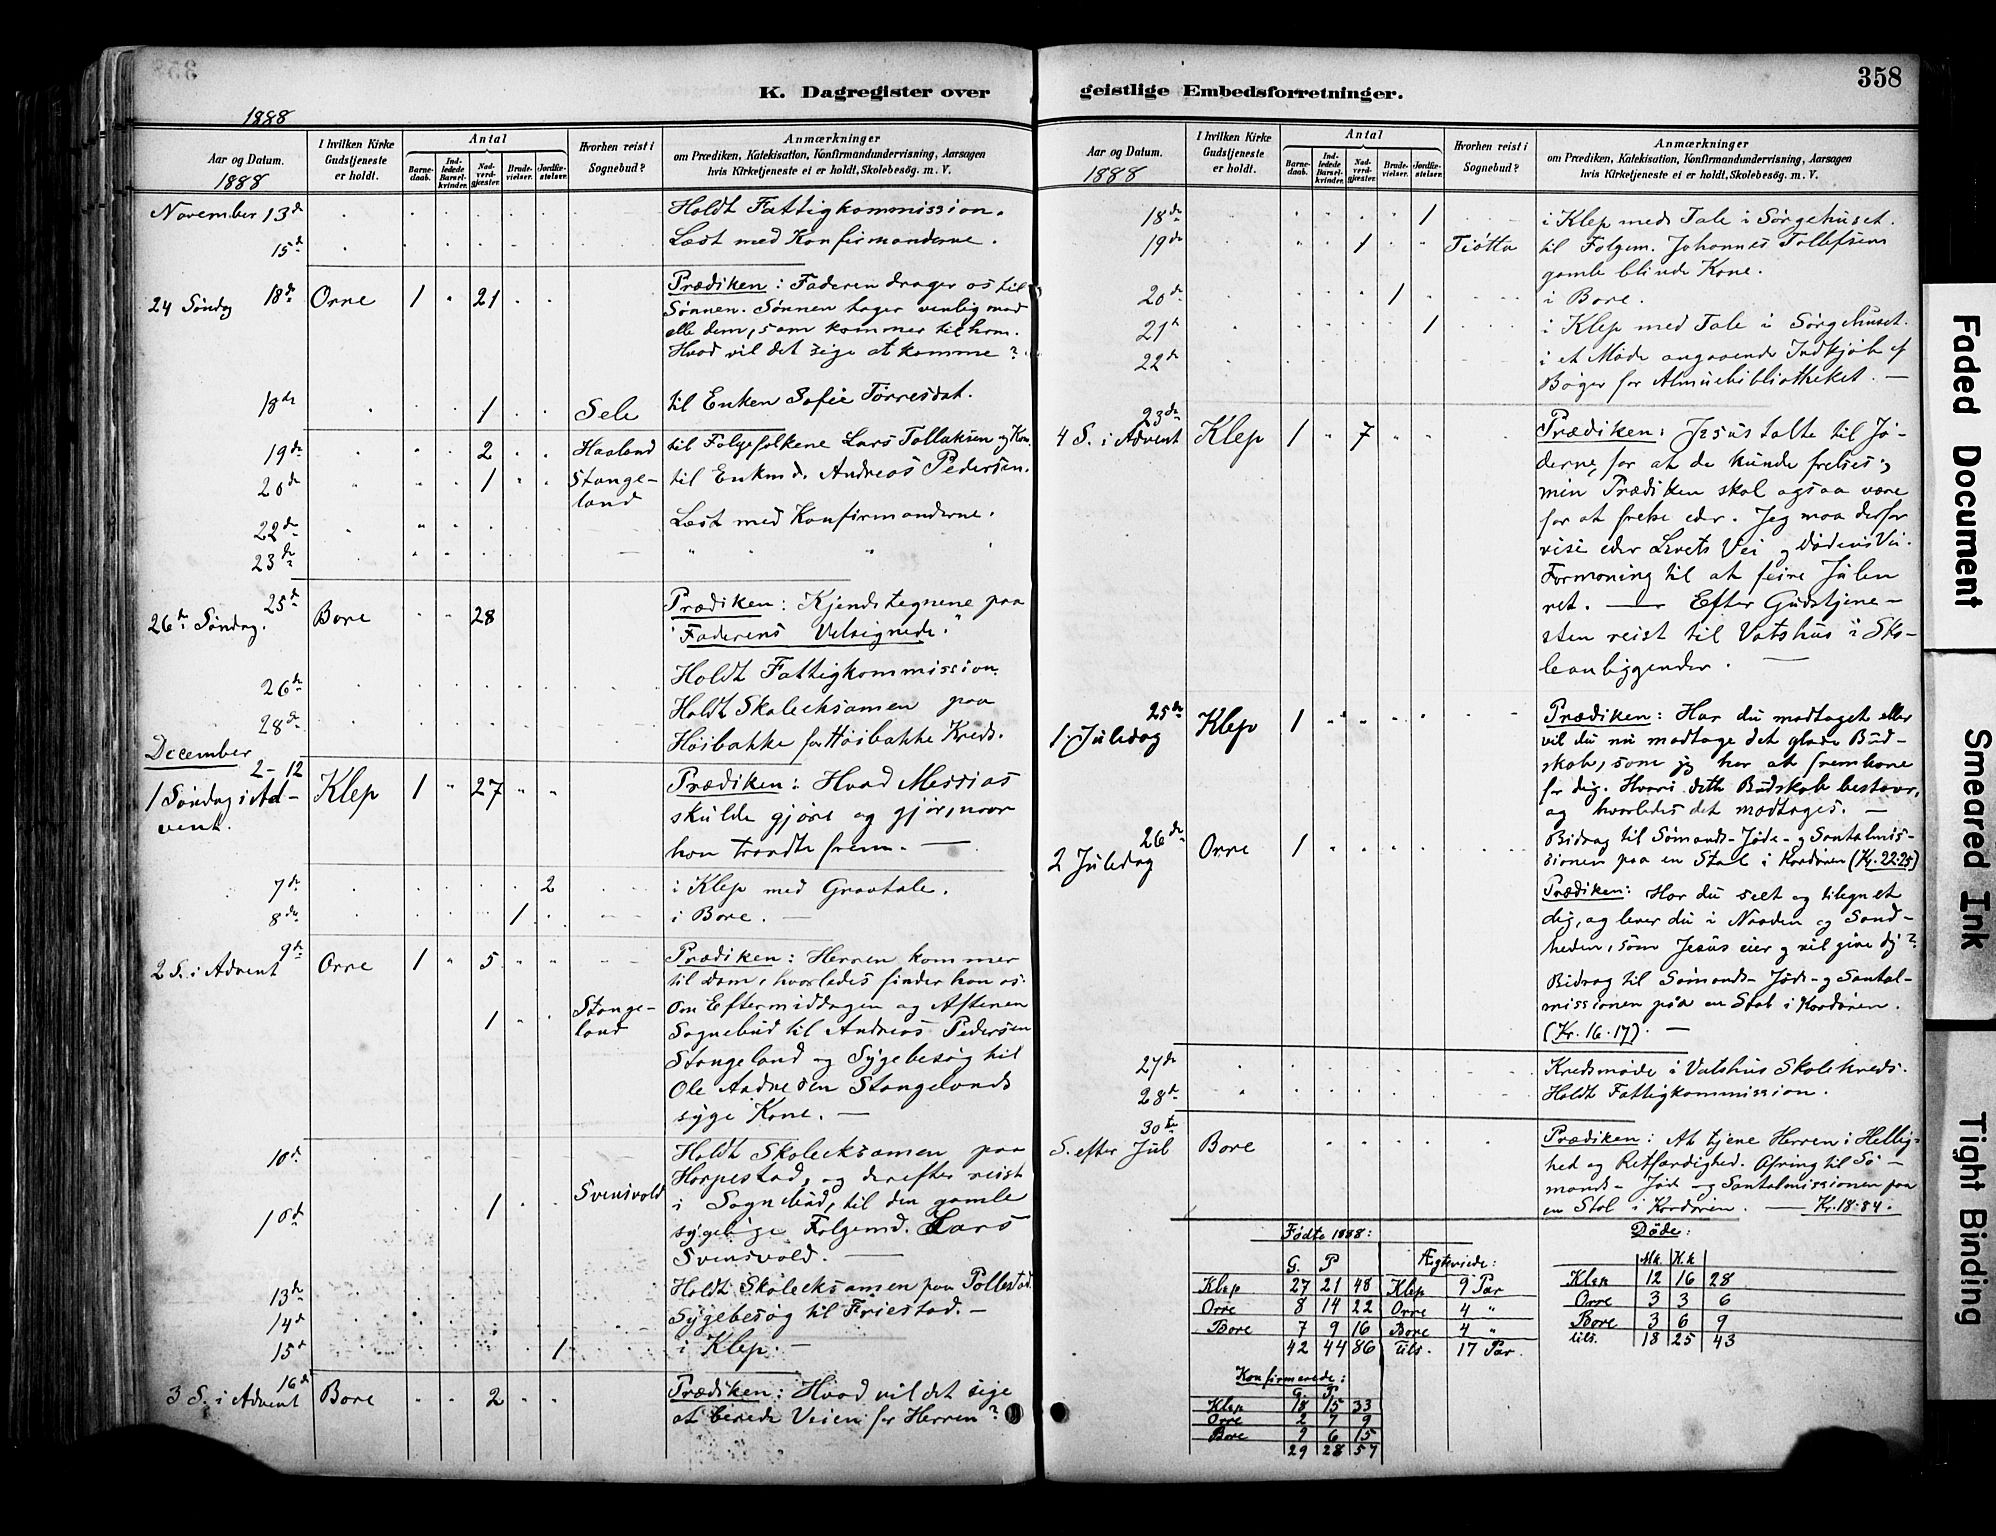 358
K. Dagregister over
geistlige Embedsforretninger.
1888
Aar og Datum.
1888
I hvilken Kirke Gudstjeneste er holdt.
Antal
Barnedaab.
Indledede Barselkvinder.
Nadverdgjæster.
Brudevielser.
Jordfæstelser.
Hvorhen reist i Sognebud?
Anmærkninger
om Prædiken, Katekisation, Konfirmandundervisning, Aarsagen
hvis Kirketjeneste ei er holdt, Skolebesøg. m. V.
November 13de Holdt Fattigkommission.
15de Læst med Konfirmanderne.
24 Søndag 18de Orre 1 " 21 Prædiken: Faderen drager os til
Sønnen. Sønnen tager venlig mod
alle dem, som kommer til ham.
Hvad vil det sige at komme?
18de 1 Sele til Enken Sofie Torresdat.
19de 2 Haaland til Folgefolkene Lars Tollaksen og Kon.
20de 1 Stange- til Enkmd. Andreas Pedersen.
land
22de Læst med Konfirmanderne.
23de " " " "
25de
26de Søndag. Bore 28 Prædiken: Kjendetegnene paa
"Faderens Velsignede."
26de Holdt Fattigkommission.
28de Holdt Skoleeksamen paa
Høibakke for Høibakke Kreds.
December
2-12
1 Søndag i Ad- Klep 1 " 27 Prædiken: Hvad Messias
vent. skulde gjøre og gjør, naar
han traadte frem. —
7de 2 i Klep med Gravtale.
8de 1 i Bore. —
9de
2 S. i Advent Orre 1 " 5 Prædiken: Herren kommer
til Dom, hvorledes finder han os.
Stange- Om Eftermiddagen og Aftenen
1 land Sognebud til Andreas Pedersen
Stangeland og Sygebesøg til
Ole Aadnesen Stangelands
syge Kone. —
10de Holdt Skoleeksamen paa
Horpestad, og derefter reist
10de 1 Svensvold i Sognebud, til den gamle
sygelige Folgemd. Lars
Svensvold. —
13de Holdt Skoleeksamen paa Pollestad.
14de Sygebesøg til Friestad. —
15de 1 i Klep. —
16de
3 S. i Advent Bore 2 Prædiken: Hvad vil det sige
at berede Veien for Herren?
Aar og Datum.
1888
I hvilken Kirke Gudstjeneste er holdt.
Antal
Barnedaab.
Indledede Barselkvinder.
Nadverdgjæster.
Brudevielser.
Jordfæstelser.
Hvorhen reist i Sognebud?
Anmærkninger
om Prædiken, Katekisation, Konfirmandundervisning, Aarsagen
hvis Kirketjeneste ei er holdt, Skolebesøg. m. V.
18de 1 i Klep med Tale i Sørgehuset.
19de 1 Tiøtta til Folgem. Johannes Tollefsens
gamle blinde Kone.
20de 1 i Bore.
21de 1 i Klep med Tale i Sørgehuset.
22de i et Møde angaaende Indkjøb af
Bøger for Almuebibliotheket. —
23de
4 S. i Advent Klep 1 " 7 Prædiken: Jesus talte til Jø-
derne, for at de kunde frelses;
min Prædiken skal ogsaa være
for at frelse eder. Jeg maa derfor
vise eder Livets Vei og Dødens Vei.
Formaning til at feire Julen
ret. — Efter Gudstjene-
sten reist til Vatshus i Sko-
leanliggender. —
25de
1. Juledag Klep 1 Prædiken: Har du modtaget eller
vil du nu modtage det glade Bud-
skab, som jeg har at frembære
for dig. Hvori dette Budskab bestaar,
og hvorledes det modtages. —
Bidrag til Sømands- Jøde- og Santalmis-
sionen paa en Stol i Kordøren (Kr. 22.25)
26de
2 Juledag Orre 1 Prædiken: Har du seet og tilegnet
dig, og lever du i Naaden og Sand-
heden, som Jesus eier og vil give dig?
Bidrag til Sømands- Jøde- og Santal-
missionen paa en Stol i Kordøren.
(Kr. 16.17). —
27de Kredsmøde i Vatshus Skolekreds.
28de Holdt Fattigkommission.
30te
S. efter Jul Bore Prædiken: At tjene Herren i Hellig-
hed og Retfærdighed. Ofring til Sø-
mands- Jøde- og Santalmissionen paa
en Stol i Kordøren. — Kr. 18.84.
Fødte 1888:
G. P
Klep 27 21 48
Orre 8 14 22
Bore 7 9 16
42 44 86
Ægteviede:
Klep 9 Par
Orre 4 "
Bore 4 "
Tils. 17 Par.
Døde:
Mk. K.k
Klep 12 16 28
Orre 3 3 6
Bore 3 6 9
tils. 18 25 43
Konfirmerede:
G. P.
Klep 18 15 33
Orre 2 7 9
Bore 9 6 15
29 28 57
Faded Document
Smeared Ink
Tight Binding